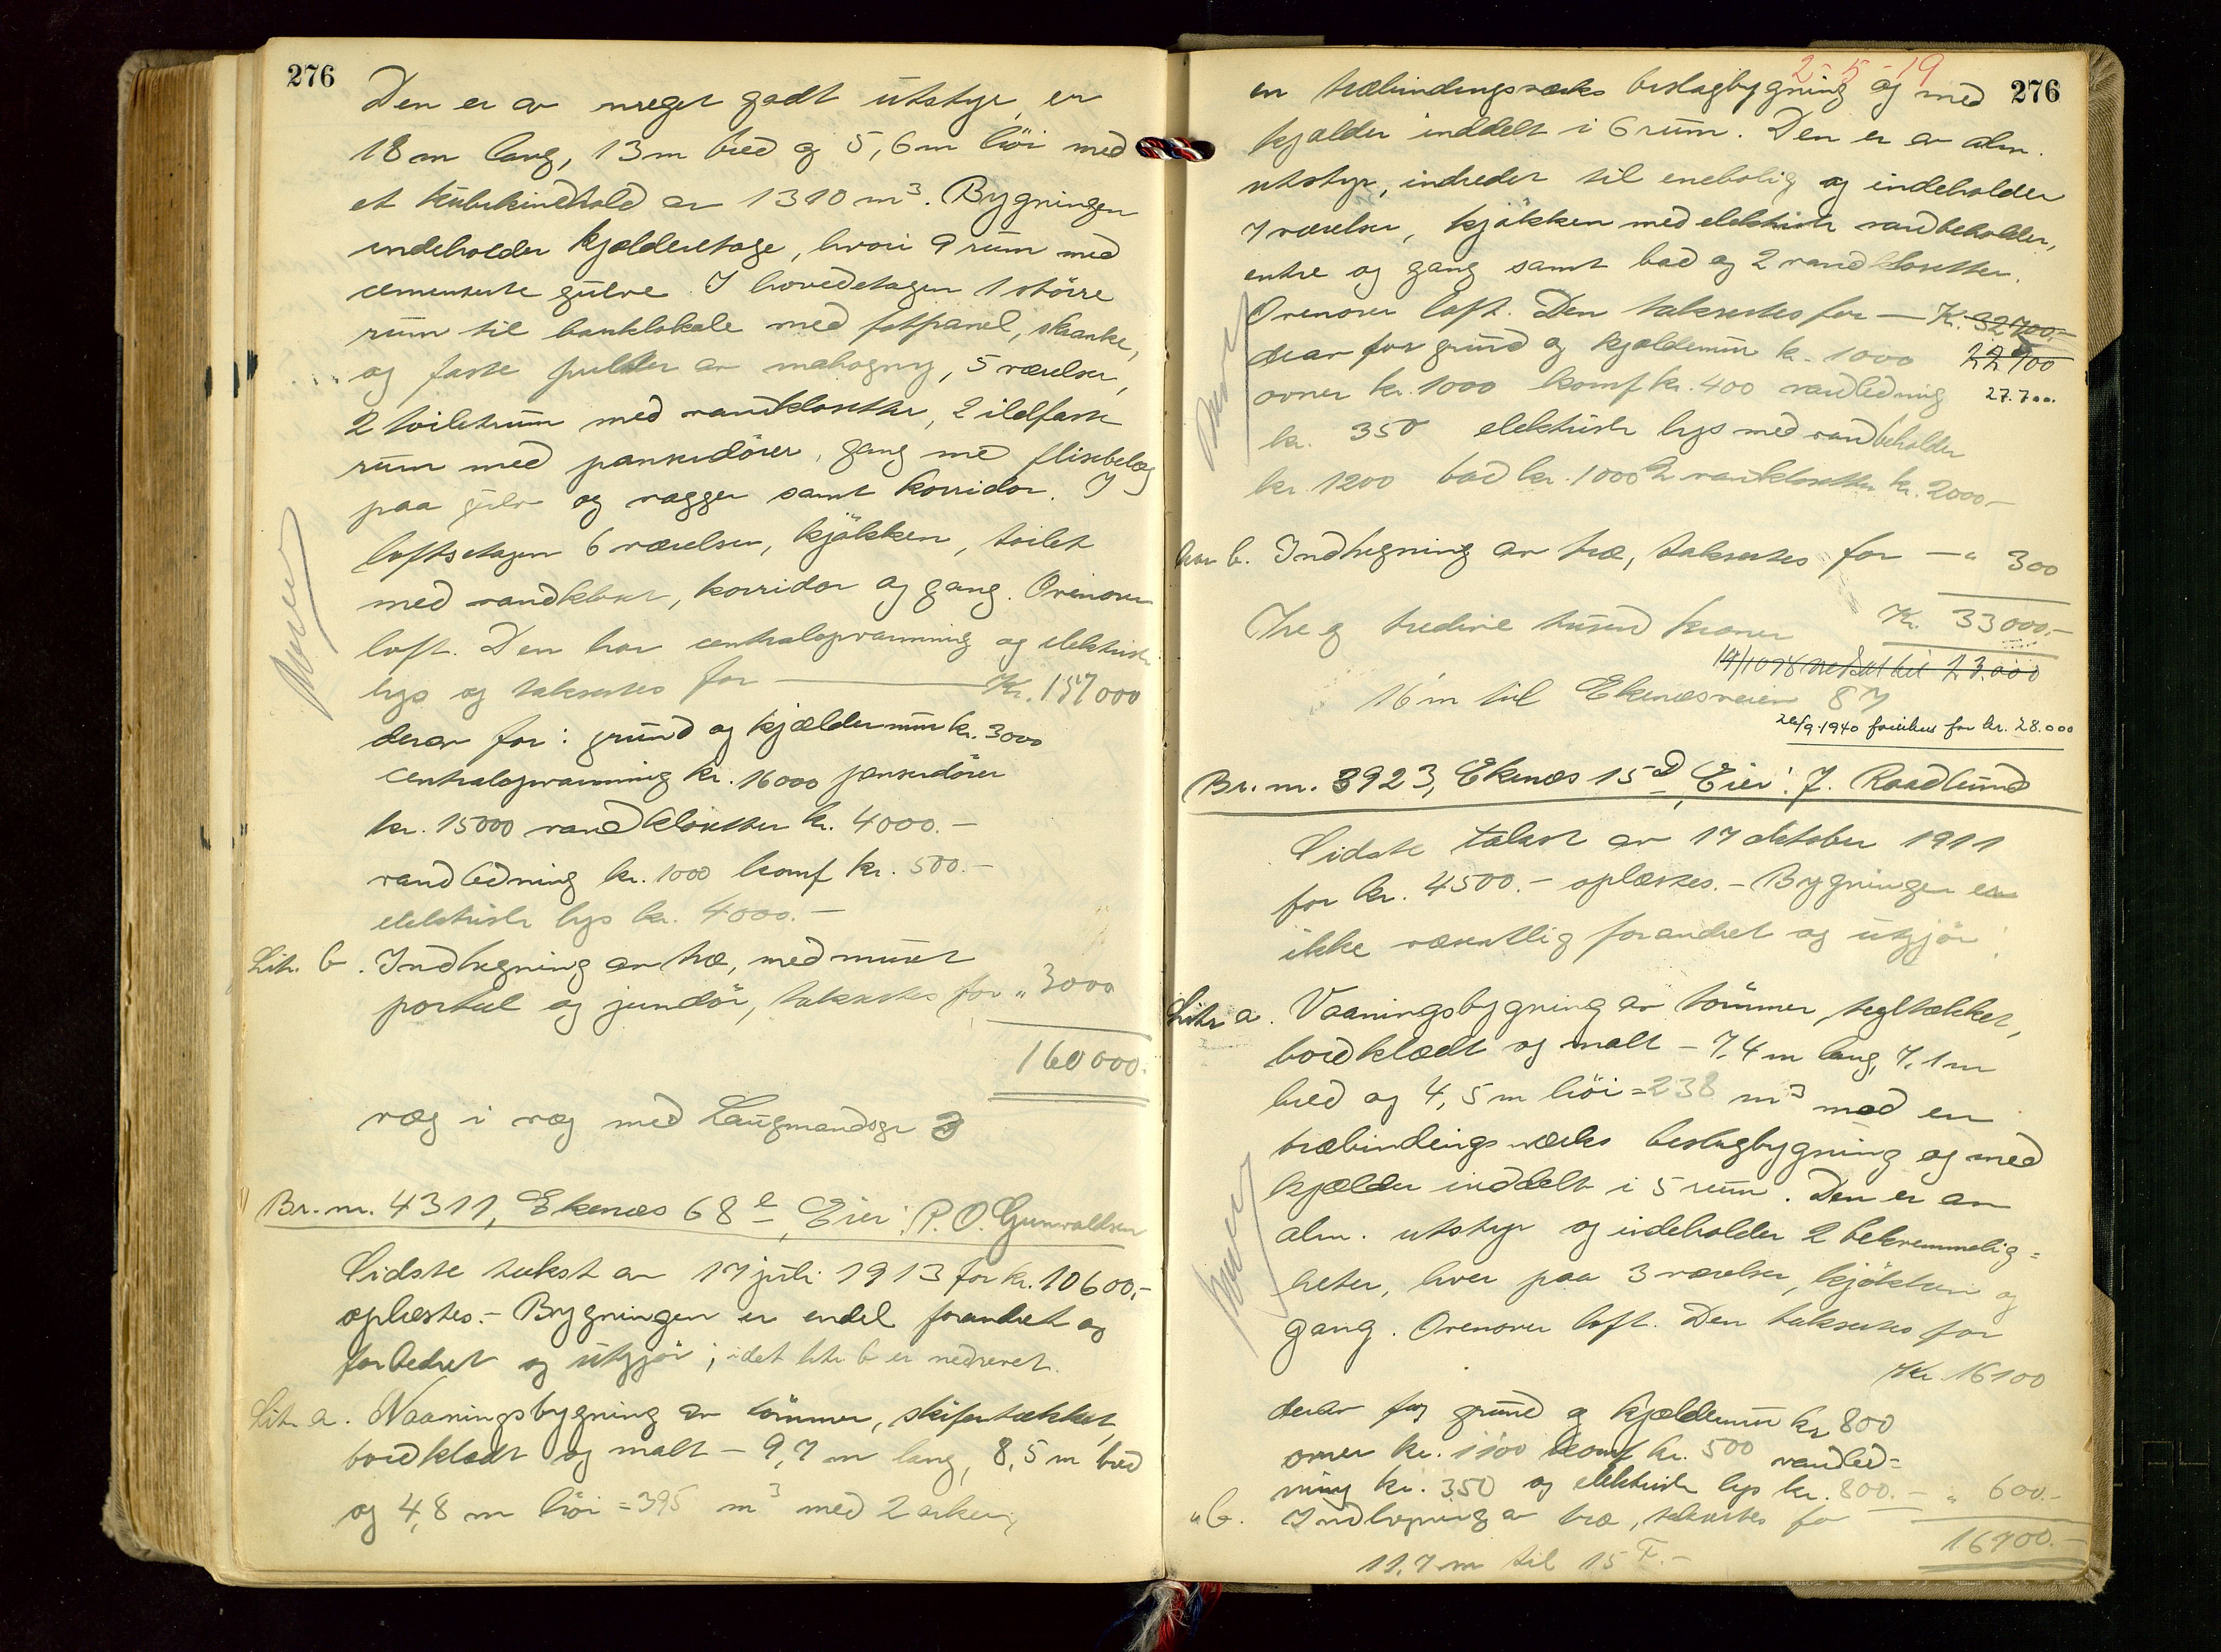 276
Den er av meget godt utstyr, er
18 m lang, 13 m bred og 5,6 m höi med
et kubikindhold av 1310 m³. Bygningen
indeholder kjælderetage, hvori 9 rum med
cementerte gulve. I hovedetagen 1 större
rum til banklokale med fotpanel, skranke,
og faste pulter av mahogny, 5 værelser,
2 toiletrum med vandklosetter, 2 ildfaste
rum med panserdörer, gang med flisebelæg
paa gulv og vægger samt korridor. I
loftsetagen 6 værelser, kjökken, toilet
med vandkloset, korridor og gang. Ovenover
loft. Den har centralopvarmning og elektrisk
lys og taksertes for — Kr. 157000
derav for: grund og kjældermur kr. 3000
centralopvarmning kr. 16000 panserdörer
kr. 15000 vandklosetter kr. 4000.-
vandledning kr. 1000 komf kr. 500.-
elektrisk lys kr. 4000.-
Litr. b. Indhegning av træ, med muret
portal og jerndör, taksertes for „ 3000
160000.
væg i væg med Laugmandsgt 3
Br. nr. 4311, Ekenæs 68 e, Eier: P. O. Gunvaldsen
Sidste takst av 17 juli 1913 for kr. 10600,-
oplæstes.- Bygningen er endel forandret og
forbedret og utgjör; idet litr b er nedrevet.
Litr a. Vaaningsbygning av tömmer, skifertækket,
bordklædt og malt - 9,7 m lang, 8,5 m bred
og 4,8 m höi = 395 m³ med 2 arker,
2-5-19
276
en træbindingsværks beslagbygning og med
kjælder inddelt i 6 rum. Den er av alm.
utstyr, indredet til enebolig og indeholder
7 værelser, kjökken med elektrisk vandbeholder,
entre og gang samt bad og 2 vandklosetter.
Ovenover loft. Den taksertes for — Kr. 32700.-
derav for grund og kjældermur k. 1000 22700
ovner kr. 1000 komf kr. 400 vandledning 27.700
kr. 350 elektrisk lys med vandbeholder
kr. 1200 bad kr. 1000 2 vandklosetter kr. 2000.-
b. Indhegning av træ, taksertes for — „ 300
Tre og tredive tusend kroner Kr. 33000.-
19/10 98 nedsat til 23.000
16 m til Ekenæsveien 87
26/9 1940 forhöiet for kr. 28.000
Br. nr. 3923, Ekenæs 15 D, Eier: J. Raadlund
Sidste takst av 17 oktober 1911
for kr. 4500.- oplæstes.- Bygningen er
ikke væsentlig forandret og utgjör:
Litr a. Vaaningsbygning av tömmer, tegltækket,
bordklædt og malt - 7,4 m lang, 7,1 m
bred og 4,5 m höi = 238 m³ med en
træbindingsværks beslagbygning og med
kjælder inddelt i 5 rum. Den er av
alm. utstyr og indeholder 2 bekvemmelig=
heter, hver paa 3 værelser, kjökken og
gang. Ovenover loft. Den taksertes for
Kr. 16100
derav for grund og kjældermur kr 800
ovner kr. 1100 komf kr. 500 vandled=
ning kr. 350 og elektrisk lys kr. 800.-
„ b. Indhegning av træ, taksertes for — „ 600.-
16700.-
11,7 m til 15 F.-